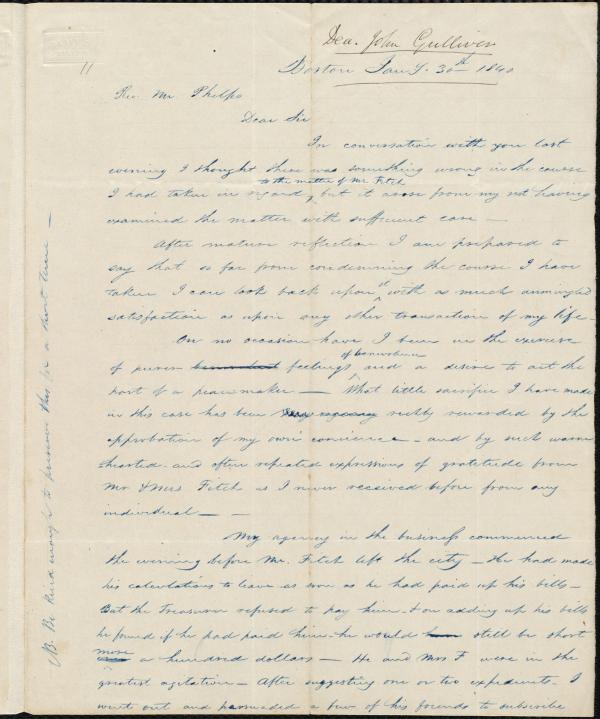 Dea. John Gulliver
11
Boston Jany. 30th 1840
Rev. Mr Phelps
Dear Sir
In conversation with you last
evening I thought there was something wrong in the course
to the matter of Mr. Fitch
I had taken in regard, but it arose from my not having
examined the matter with sufficient care —
After mature reflection I am prepared to
say that so far from condemning the course I have
taken I can look back upon it with as much unmingled
satisfaction as upon any other transaction of my life —
On no occasion have I been in the exercise
of benevolence
of purer benevolent feelings, and a desire to act the
part of a peacemaker — What little sacrifice I have made
in this case has been richly rewarded by the
approbation of my own conscience — and by such warm
hearted and often repeated expressions of gratitude from
Mr & Mrs Fitch as I never received before from any
individual —
My agency in the business commenced
the evening before Mr. Fitch left the city — He had made
his calculations to leave as soon as he had paid up his bills —
But the Treasurer refused to pay him & on adding up his bills
he found if he had paid him he would still be short
more
a hundred dollars — He and Mrs F were in the
greatest agitation — After suggesting one or two expedients I
went out and persuaded a few of his friends to subscribe
NB. Be kind enough to preserve this for a short time —